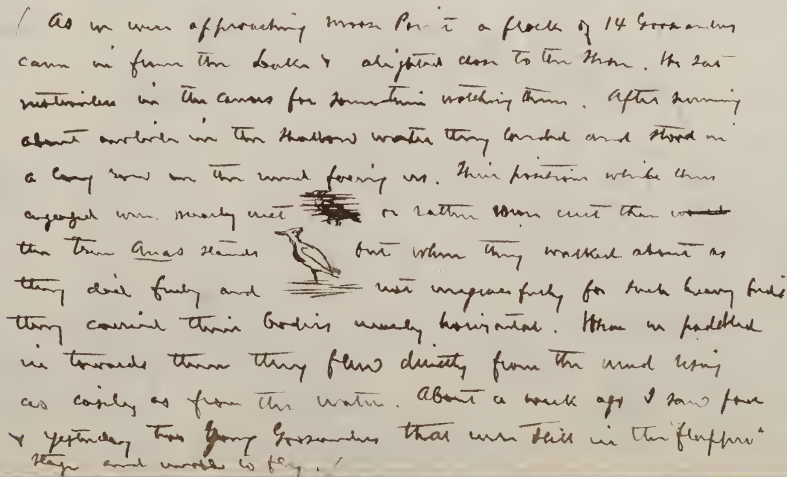 ( As we were approaching Moose Point a flock of 14 Goosanders
came in from the Lake & alighted close to the shore. We sat
motionless in the canoe for sometime watching them. After swimming
about awhile in the shallow water they landed and stood in
a long row on the sand facing us. Their positions while thus
engaged were nearly erect or rather more erect than
the true Anas stands but when they walked about as
they did freely and not ungracefully for such heavy birds
they carried their bodies nearly horizontal. When we paddled
in towards them they flew directly from the sand rising
as easily as from the water. About a week ago I saw four
& yesterday two young Goosanders that were still in the "flapper"
stage and unable to fly. /